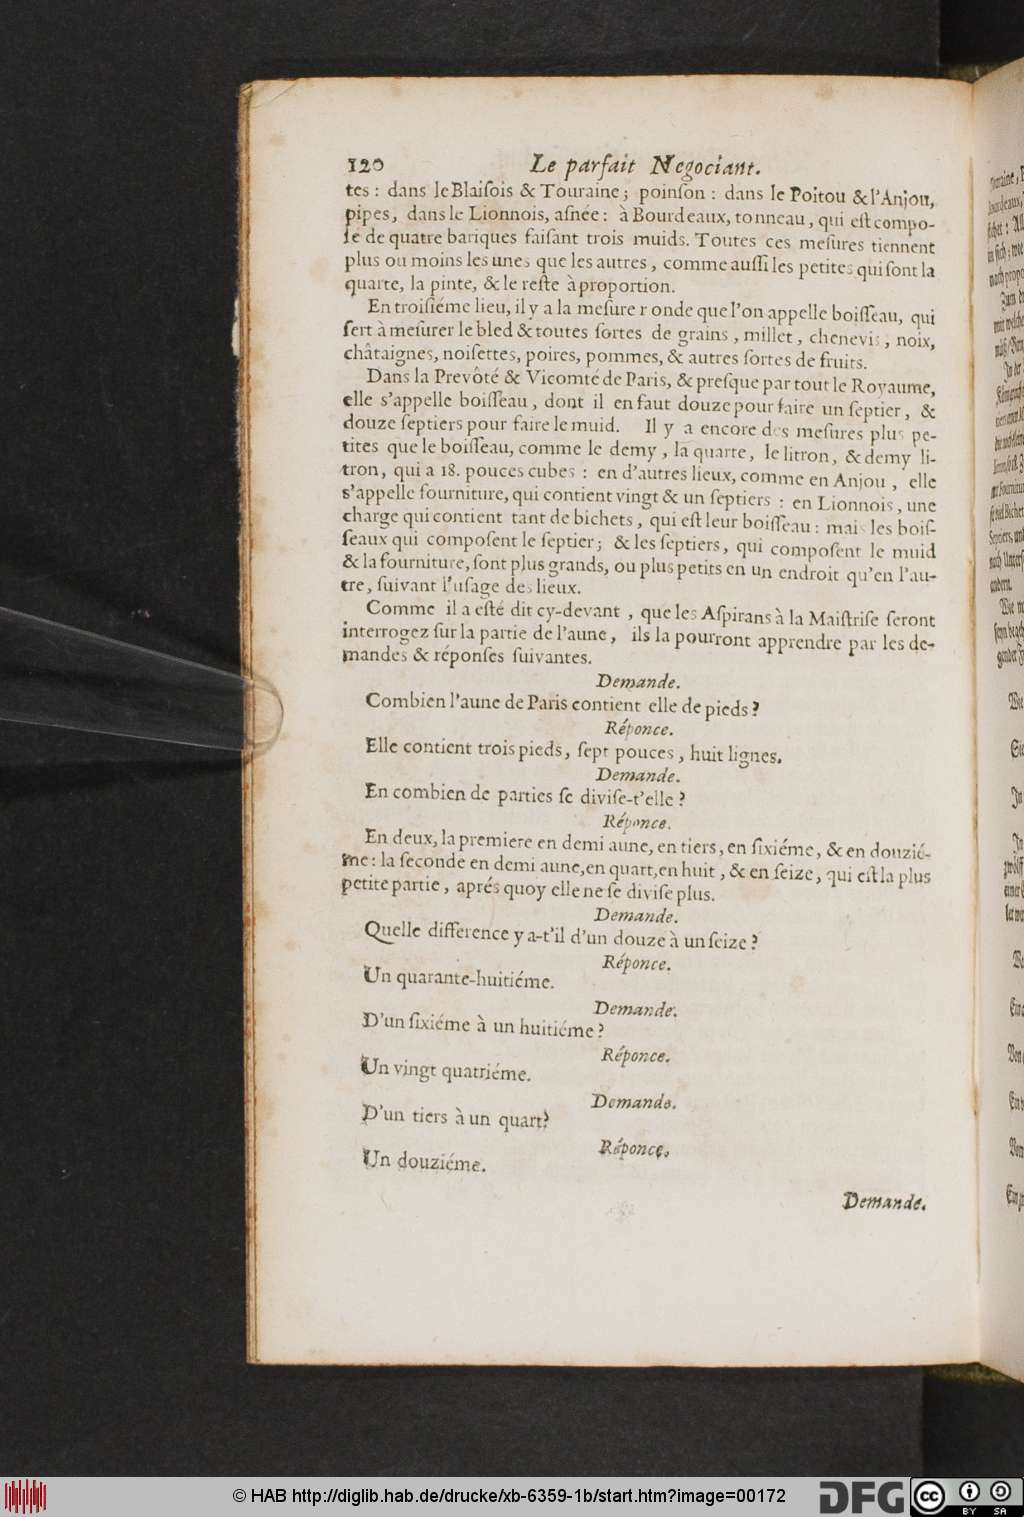 120 Le parfait Negociant.
tes : dans le Blaiſois & Touraine ; poinſon : dans le Poitou & l'Anjou,
pipes, dans le Lionnois, aſnée : à Bourdeaux, tonneau, qui eſt compo-
ſé de quatre bariques faiſant trois muids. Toutes ces meſures tiennent
plus ou moins les unes que les autres, comme auſſi les petites qui ſont la
quarte, la pinte, & le reſte à proportion.
En troiſiéme lieu, il y a la meſure ronde que l'on appelle boiſſeau, qui
ſert à meſurer le bled & toutes ſortes de grains, millet, chenevis, noix,
châtaignes, noiſettes, poires, pommes, & autres ſortes de fruits.
Dans la Prevôté & Vicomté de Paris, & preſque par tout le Royaume,
elle s'appelle boiſſeau, dont il en faut douze pour faire un ſeptier, &
douze ſeptiers pour faire le muid. Il y a encore des meſures plus pe-
tites que le boiſſeau, comme le demy, la quarte, le litron, & demy li-
tron, qui a 18. pouces cubes : en d'autres lieux, comme en Anjou, elle
s'appelle fourniture, qui contient vingt & un ſeptiers : en Lionnois, une
charge qui contient tant de bichets, qui eſt leur boiſſeau : mais les boiſ-
ſeaux qui compoſent le ſeptier ; & les ſeptiers, qui compoſent le muid
& la fourniture, ſont plus grands, ou plus petits en un endroit qu'en l'au-
tre, ſuivant l'uſage des lieux.
Comme il a eſté dit cy-devant, que les Aſpirans à la Maiſtriſe ſeront
interrogez ſur la partie de l'aune, ils la pourront apprendre par les de-
mandes & réponſes ſuivantes.
Demande.
Combien l'aune de Paris contient elle de pieds ?
Réponce.
Elle contient trois pieds, ſept pouces, huit lignes.
Demande.
En combien de parties ſe diviſe-t'elle ?
Réponce.
En deux, la premiere en demi aune, en tiers, en ſixiéme, & en douzié-
me : la ſeconde en demi aune, en quart, en huit, & en ſeize, qui eſt la plus
petite partie, aprés quoy elle ne ſe diviſe plus.
Demande.
Quelle difference y a-t'il d'un douze à un ſeize ?
Réponce.
Un quarante-huitiéme.
Demande.
D'un ſixiéme à un huitiéme ?
Réponce.
Un vingt quatriéme.
Demande.
D'un tiers à un quart?
Réponce.
Un douziéme.
Demande.
© HAB http://diglib.hab.de/drucke/xb-6359-1b/start.htm?image=00172
DFG
cc BY SA